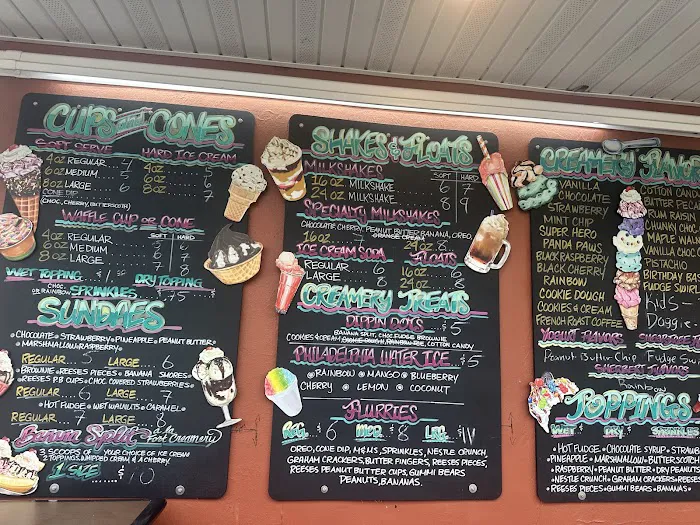 CUPS and CONES
SOFT SERVE HARD ICE CREAM
4oz REGULAR
6oz MEDIUM
8oz LARGE
4oz
6oz
8oz
CONE DIP
(CHOC, CHERRY, BUTTERSCOTCH)
WAFFLE CUP OR CONE
SOFT HARD
4oz REGULAR
6oz MEDIUM
8oz LARGE
WET TOPPING DRY TOPPING
CHOC. OR RAINBOW SPRINKLES .75
SUNDAES
CHOCOLATE STRAWBERRY PINEAPPLE PEANUT BUTTER
MARSHMALLOW RASPBERRY
REGULAR 5 LARGE 6
BROWNIE REESES PIECES BANANA SMORES
REESES P.B CUPS CHOC. COVERED STRAWBERRIES
REGULAR 6 LARGE 7
HOT FUDGE WET WALNUTS CARAMEL
REGULAR 7 LARGE 8
Banana Split a la Foot Creamery
3 SCOOPS OF YOUR CHOICE OF ICE CREAM
2 TOPPINGS, WHIPPED CREAM & A CHERRY.
1 SIZE 10
SHAKES & FLOATS
MILKSHAKES SOFT HARD
16 oz. MILKSHAKE 6 7
24 oz. MILKSHAKE 8 9
SPECIALTY MILKSHAKES
CHOCOLATE CHERRY, PEANUT BUTTER BANANA, OREO,
ORANGE CREAM
16oz 7 24oz 8
ICE CREAM SODA FLOATS
REGULAR 6 16oz 6
LARGE 8 24oz 8
CREAMERY TREATS
DIPPIN DOTS $5
BANANA SPLIT, CHOC. FUDGE BROWNIE
COOKIES & CREAM, COOKIE DOUGH, RAINBOW ICE, COTTON CANDY
PHILADELPHIA WATER ICE $5
RAINBOW MANGO BLUEBERRY
CHERRY LEMON COCONUT
FLURRIES
REG. $6 MED. $8 LRG. $11
OREO, CONE DIP, M&M'S, SPRINKLES, NESTLE CRUNCH,
GRAHAM CRACKERS, BUTTER FINGERS, REESES PIECES,
REESES PEANUT BUTTER CUPS, GUMMI BEARS
PEANUTS, BANANAS.
CREAMERY FLAVOR
VANILLA
CHOCOLATE
STRAWBERRY
MINT CHIP
SUPER HERO
PANDA PAWS
BLACK RASPBERRY
BLACK CHERRY
RAINBOW
COOKIE DOUGH
COOKIES & CREAM
FRENCH ROAST COFFEE
COTTON CAND
BUTTER PECA
RUM RAISIN
CHUNKY CHOC
MAPLE WALN
VANILLA CHOC
PISTACHIO
BIRTHDAY BA
FUDGE SWIRL
Kids -
Doggie
YOGURT FLAVORS
Peanut Butter Chip Fudge Sw
SHERBERT FLAVORS
Rainbow
TOPPINGS
WET DRY SPRINKLES
HOT FUDGE CHOCOLATE SYRUP STRAWB
PINEAPPLE MARSHMALLOW BUTTERSCOTCH
RASPBERRY PEANUT BUTTER DRY PEANUTS
NESTLE CRUNCH GRAHAM CRACKERS REES
REESES PIECES GUMMI BEARS BANANAS